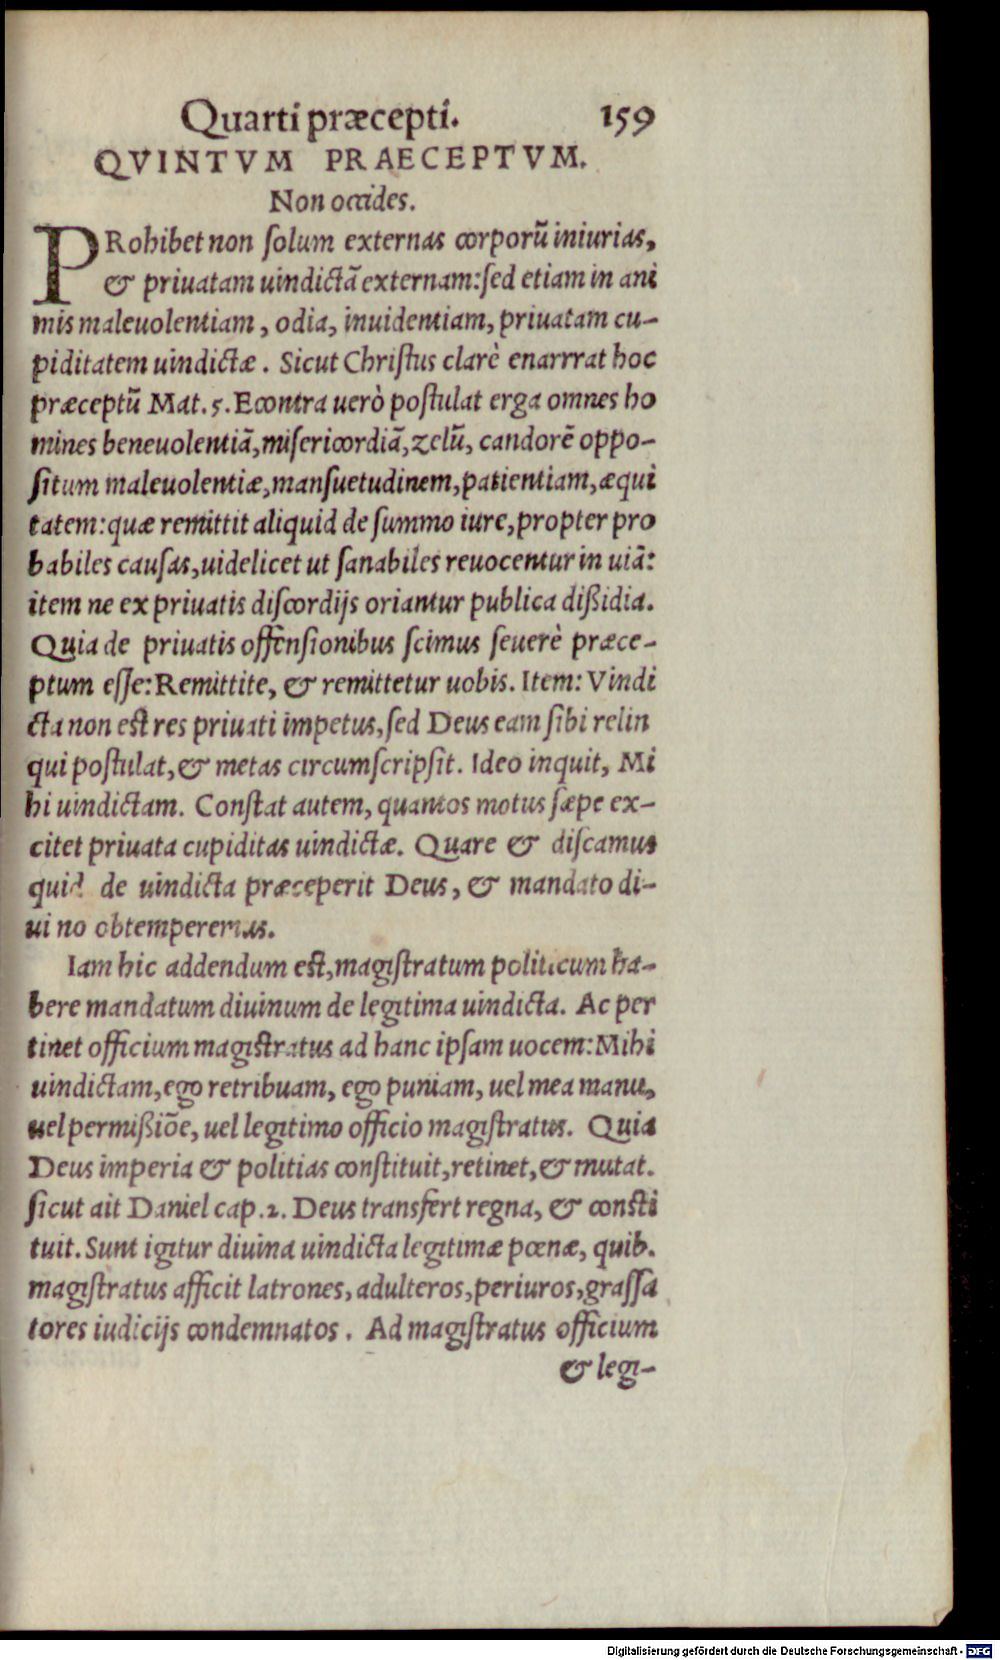 Quarti præcepti. 159
QVINTVM PRAECEPTVM.
Non occides.
PRohibet non ſolum externas corporũ iniurias,
& priuatam uindictã externam: ſed etiam in ani
mis maleuolentiam, odia, inuidentiam, priuatam cu-
piditatem uindictæ. Sicut Chriſtus clarè enarrrat hoc
præceptũ Mat. 5. Econtra uerò poſtulat erga omnes ho
mines beneuolentiã, miſericordiã, zelũ, candorẽ oppo-
ſitum maleuolentiæ, manſuetudinem, patientiam, æqui
tatem: quæ remittit aliquid de ſummo iure, propter pro
babiles cauſas, uidelicet ut ſanabiles reuocentur in uiã:
item ne ex priuatis diſcordijs oriantur publica dißidia.
Quia de priuatis offenſionibus ſcimus ſeuerè præce-
ptum eſſe: Remittite, & remittetur uobis. Item: Vindi
cta non est res priuati impetus, ſed Deus eam ſibi relin
qui poſtulat, & metas circumſcripſit. Ideo inquit, Mi
hi uindictam. Conſtat autem, quantos motus ſæpe ex-
citet priuata cupiditas uindictæ. Quare & diſcamus
quid de uindicta præceperit Deus, & mandato di-
ui no obtemperemus.
Iam hic addendum est, magiſtratum politicum ha-
bere mandatum diuinum de legitima uindicta. Ac per
tinet officium magistratus ad hanc ipſam uocem: Mihi
uindictam, ego retribuam, ego puniam, uel mea manu,
uel permißiõe, uel legitimo officio magiſtratus. Quia
Deus imperia & politias conſtituit, retinet, & mutat.
ſicut ait Daniel cap. 2. Deus transfert regna, & conſti
tuit. Sunt igitur diuina uindicta legitimæ pœnæ, quib.
magiſtratus afficit latrones, adulteros, periuros, graſſa
tores iudicijs condemnatos. Ad magiſtratus officium
& legi-
Digitalisierung gefördert durch die Deutsche Forschungsgemeinschaft - DFG